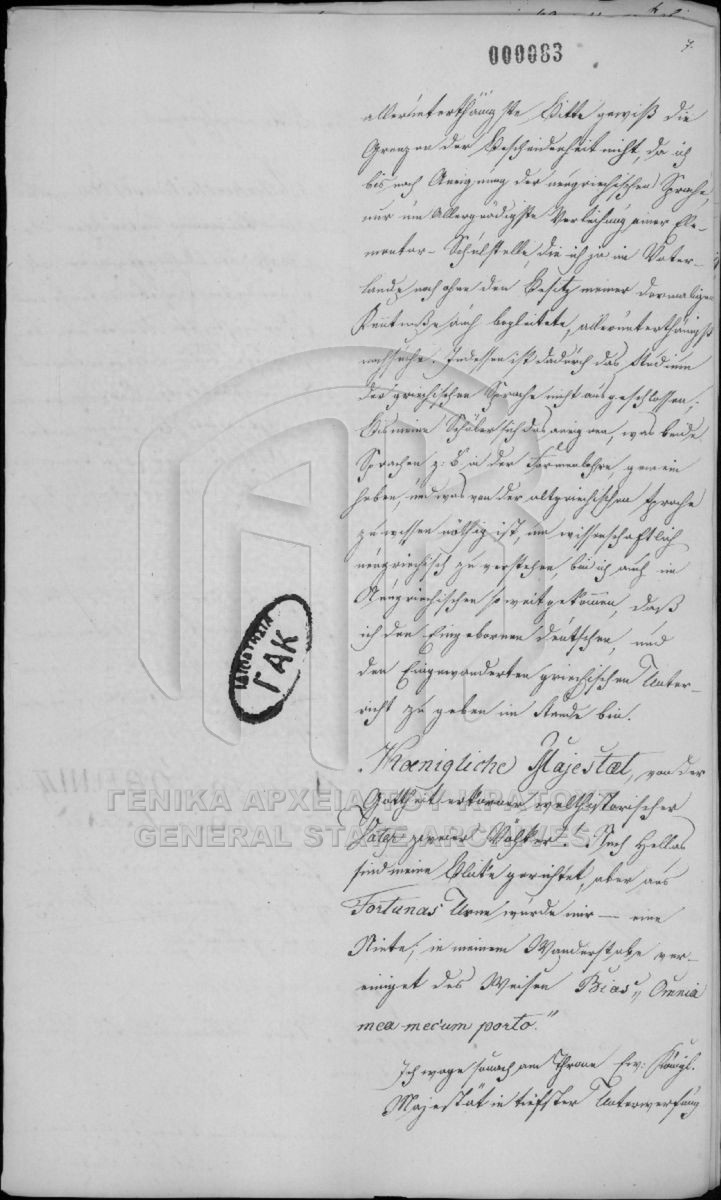 7.
000083
allerunterthänigste Bitte gewiß die
Grenzen der Bescheidenheit nicht, da ich
bis nach Aneignung der neugriechischen Sprache,
nur um Allergnädigste Verleihung einer Ele-
mentar-Schulstelle, die ich ja im Vater-
lande noch ohne den Besitz meiner dermaligen
Kenntniße auch begleitete, allerunterthänigst
nachsuche. Indessen ist dadurch das Studium
der griechischen Sprache nicht ausgeschlossen;
Bis meine Schüler sich das aneignen, was beide
Sprachen z: B. in der Formenlehre gemein
haben, und was von der altgriechischen Sprache
zu wissen nöthig ist, um wissenschaftlich
neugriechisch zu verstehen, bin ich auch im
Neugriechischen so weit gekommen, daß
ich den Eingebornen deutschen, und
den Eingewanderten griechischen Unter-
richt zu geben im Stande bin.
Kœnigliche Majestæt, von der
Gottheit erkorner welthistorischer
Vater zweier Völker! Nach Hellas
sind meine Blicke gerichtet, aber aus
Fortunas Urne wurde mir — eine
Niete; in meinem Wanderstabe ver-
einiget des Weisen Bias „Omnia
mea mecum porto."
Ich wage sonach am Throne Ew: Königl.
Majestät in tiefster Unterwerfung
ΓΑΚ
ΓΕΝΙΚΑ ΑΡΧΕΙΑ ΤΟΥ ΚΡΑΤΟΥΣ
GENERAL STATE ARCHIVES